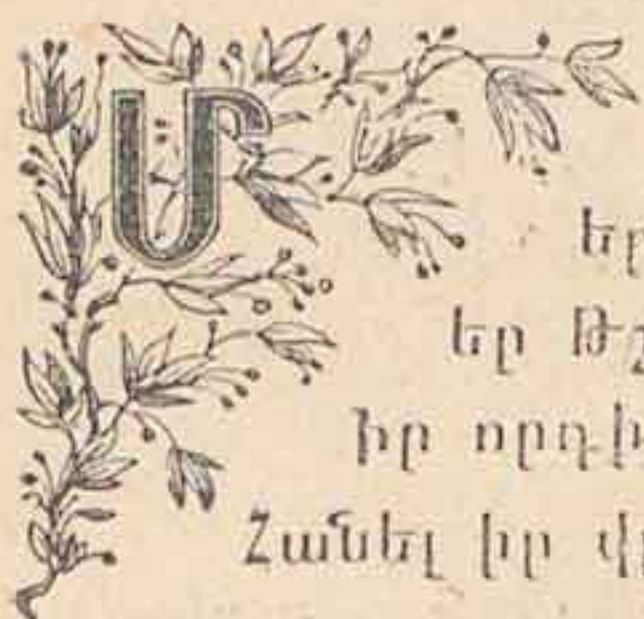 Մ
եր
եր Թշ
Իր որդի
Հանել իր վր